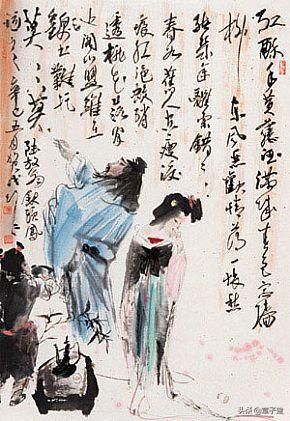 红酥手黄藤酒满城春色宫墙
柳 东风恶欢情薄一怀愁
绪几年离索错错错
春如旧人空瘦泪
痕红浥鲛绡
透桃花落闲
池阁山盟虽在
锦书难托
莫莫莫 陆放翁钗头凤
辛巳五月
头条